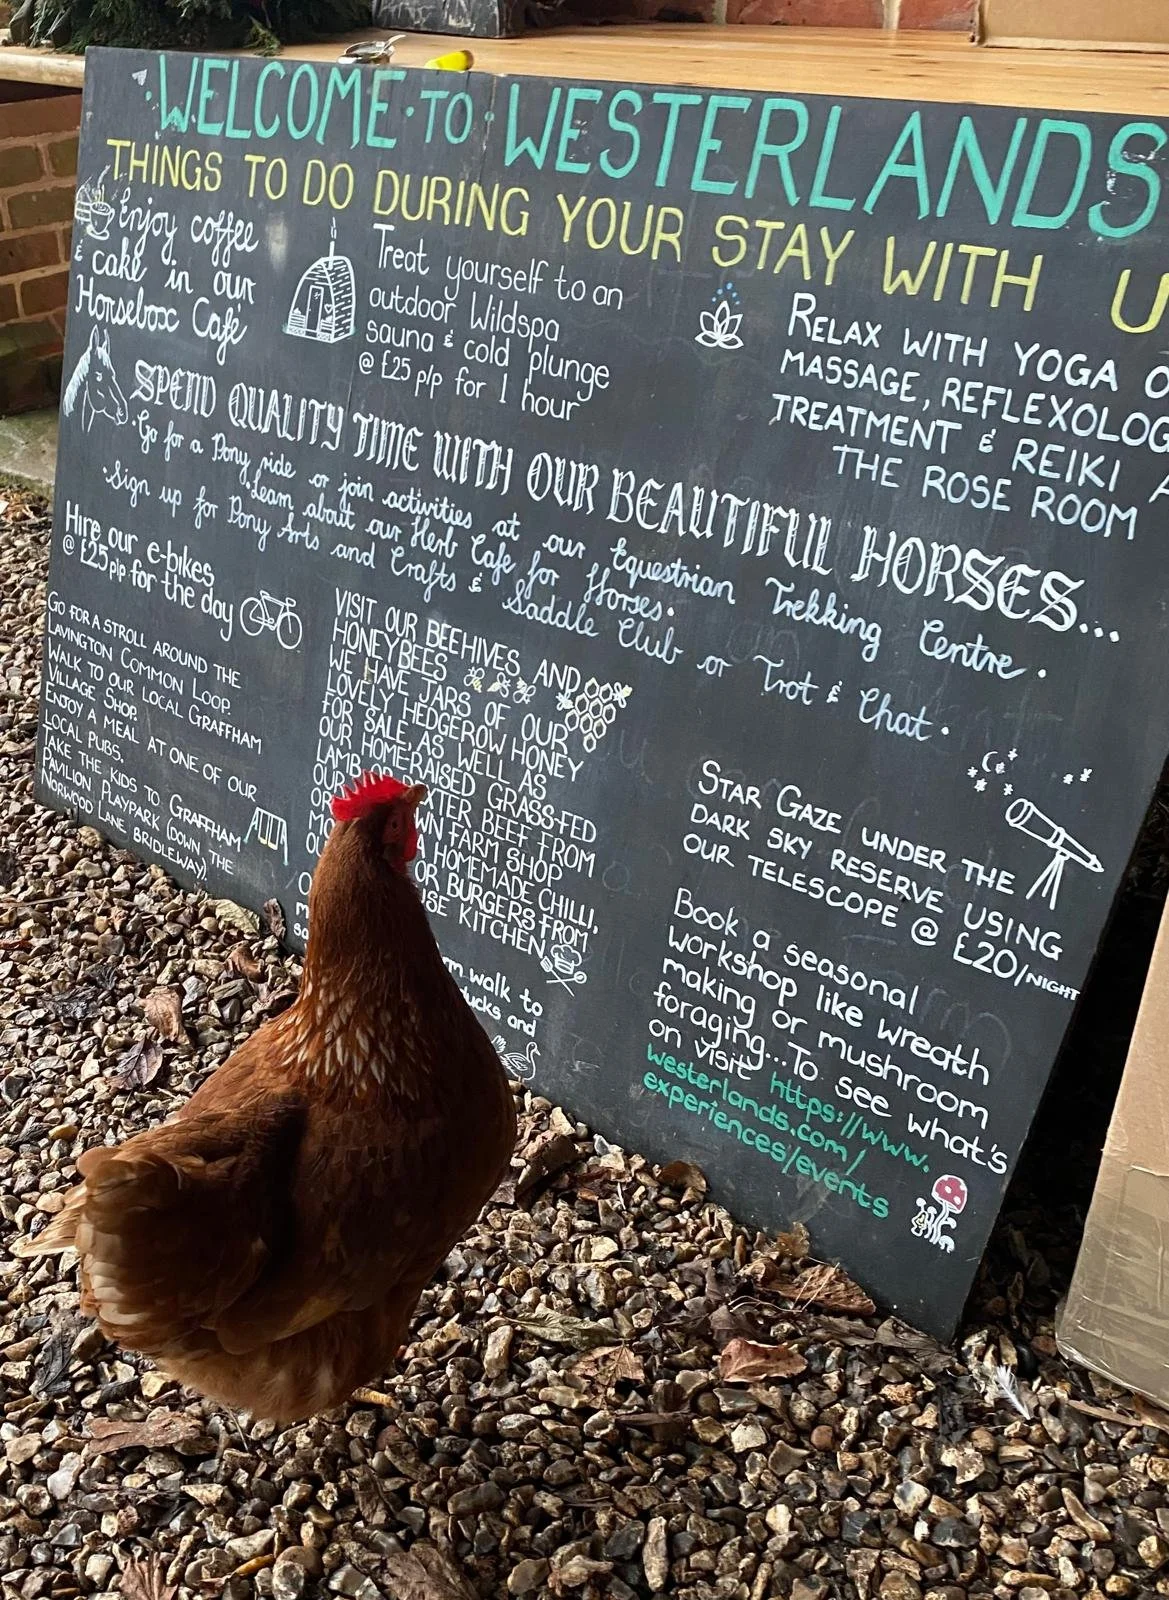 WELCOME·TO·WESTERLANDS
THINGS TO DO DURING YOUR STAY WITH
Enjoy coffee
& cake in our
Horsebox Café
Treat yourself to an
outdoor Wildspa
sauna & cold plunge
@ £25 p/p for 1 hour
RELAX WITH YOGA
MASSAGE,
TREATMENT & REIKI
THE ROSE ROOM
SPEND QUALITY TIME WITH OUR BEAUTIFUL HORSES...
·Go for a Pony ride or join activities at our Equestrian Trekking Centre.
·Learn about our Herb Cafe for Horses.
·Sign up for Pony Arts and Crafts & Saddle Club or Trot & Chat.
Hire our e-bikes
@ £25 p/p for the day
GO FOR A STROLL AROUND THE
LAVINGTON COMMON LOOP.
WALK TO OUR LOCAL GRAFFHAM
VILLAGE SHOP.
ENJOY A MEAL AT ONE OF OUR
LOCAL PUBS.
TAKE THE KIDS TO GRAFFHAM
PAVILION PLAYPARK (DOWN THE
NORWOOD LANE BRIDLEWAY).
VISIT OUR BEEHIVES AND
HONEYBEES
WE HAVE JARS OF OUR
LOVELY HEDGEROW HONEY
FOR SALE, AS WELL AS
OUR HOMERAISED GRASS-FED
LAMB DEXTER BEEF FROM
OUR FARM SHOP
A HOMEMADE CHILLI,
OR BURGERS FROM
KITCHEN
walk to
ducks and
STAR GAZE UNDER THE
DARK SKY RESERVE USING
OUR TELESCOPE @ £20/NIGHT
Book a seasonal
workshop like wreath
making or mushroom
foraging...To see what's
on visit https://www.
westerlands.com/
experiences/events